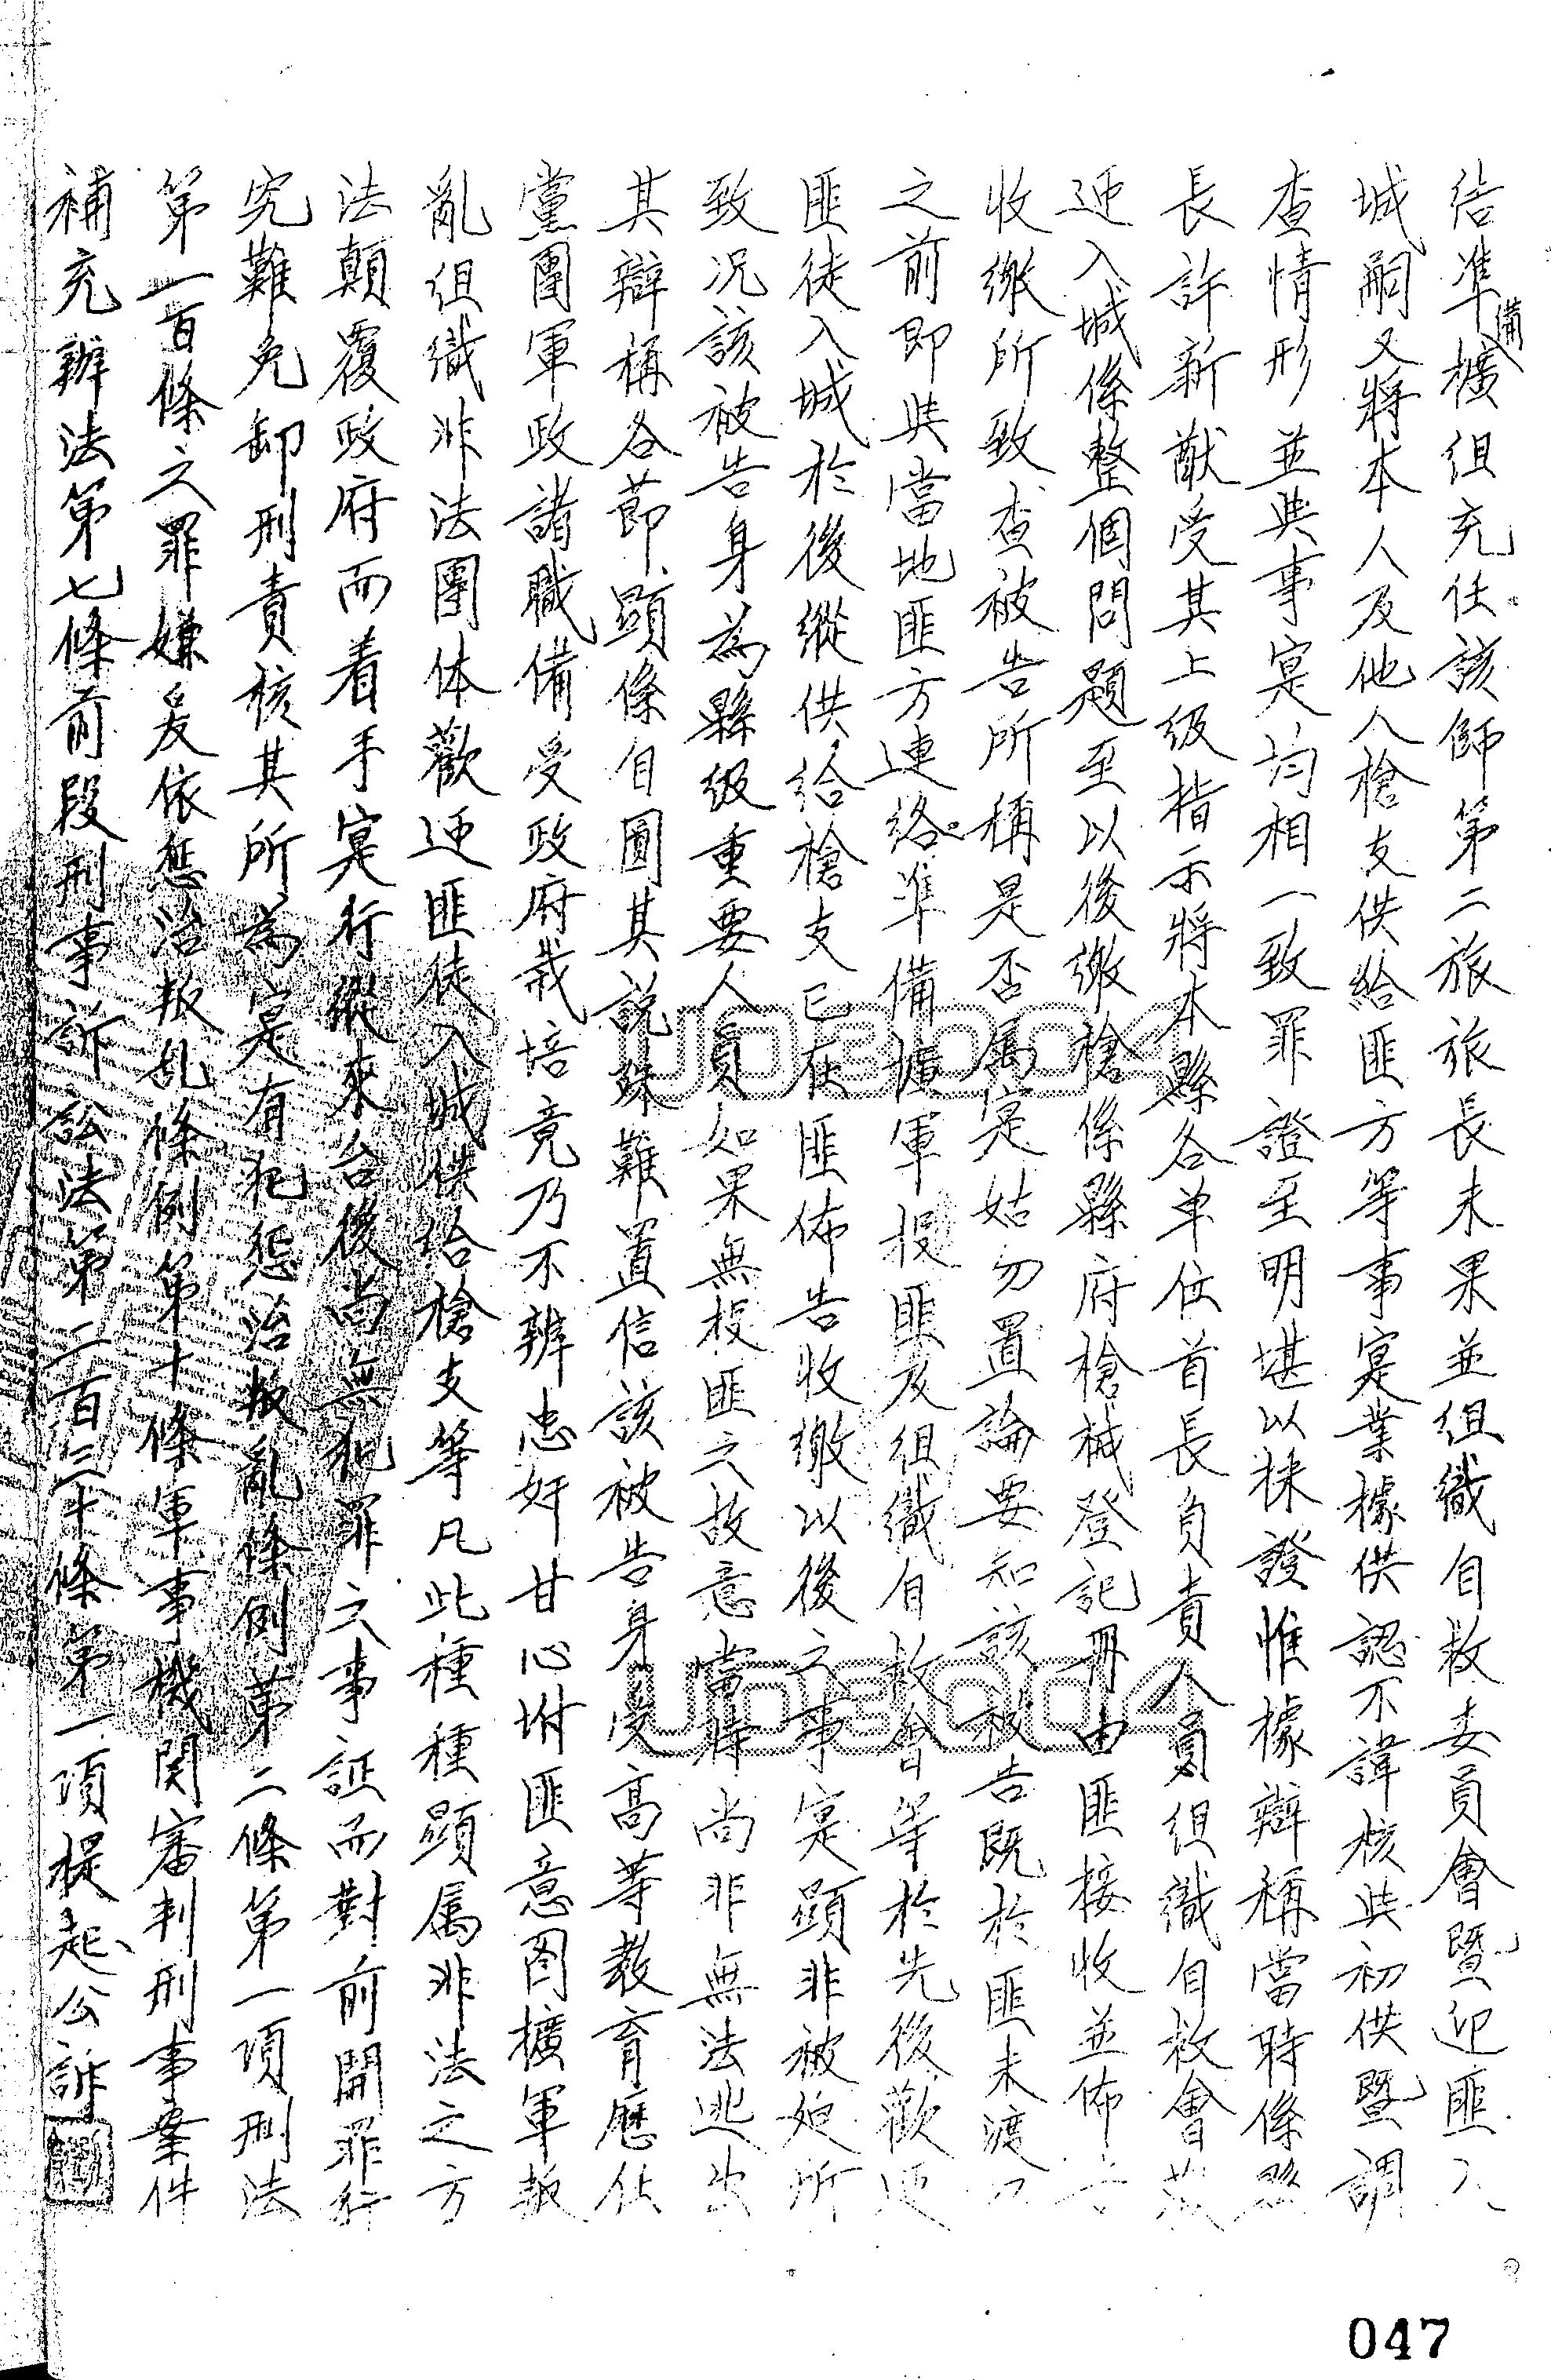 告準備擴組充任該師第二旅旅長未果並組織自救委員會暨迎匪入
城嗣又將本人及他人槍支供給匪方等事実業據供認不諱核與初供暨調
查情形並與事実均相一致罪證至明堪以採證惟據辯稱當時係縣
長許新猷受其上級指示將本縣各单位首長負責人員組織自救會歡
迎入城係整個問題至以後繳槍係縣府槍械登記冊由匪接收並佈告
收繳所致查被告所稱是否属実姑勿置論要知該被告既於匪未渡江
之前即與當地匪方連絡準備擴軍投匪及組織自救會等於先後歡迎
匪徒入城於後縱供給槍支已在匪佈告收繳以後之事実顯非被迫所
致况該被告身為縣級重要人員如果無投匪之故意當時尚非無法逃出
其辯稱各節顯係自圓其說殊難置信該被告身受高等教育歷任
黨團軍政諸職備受政府栽培竟乃不辨忠奸甘心附匪意图擴軍叛
亂组織非法團体歡迎匪徒入城供给槍支等凡此種種顯属非法之方
法顛覆政府而着手実行縱來台後尚無犯罪之事証而對前開罪行
究難免卸刑責核其所為実有犯惩治叛亂條例第二條第一項刑法
第一百條之罪嫌爰依惩治叛乱條例第十條軍事機関審判刑事案件
補充辦法第七條前段刑事訴訟法第二百三十條第一項提起公訴
UD3004
UD3004
047